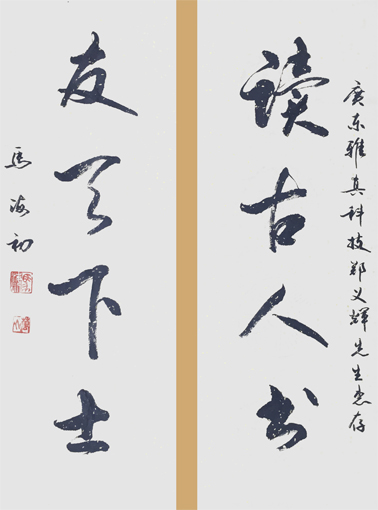 廣东雅真科技郑义輝先生惠存
读古人书
友天下士
马海初